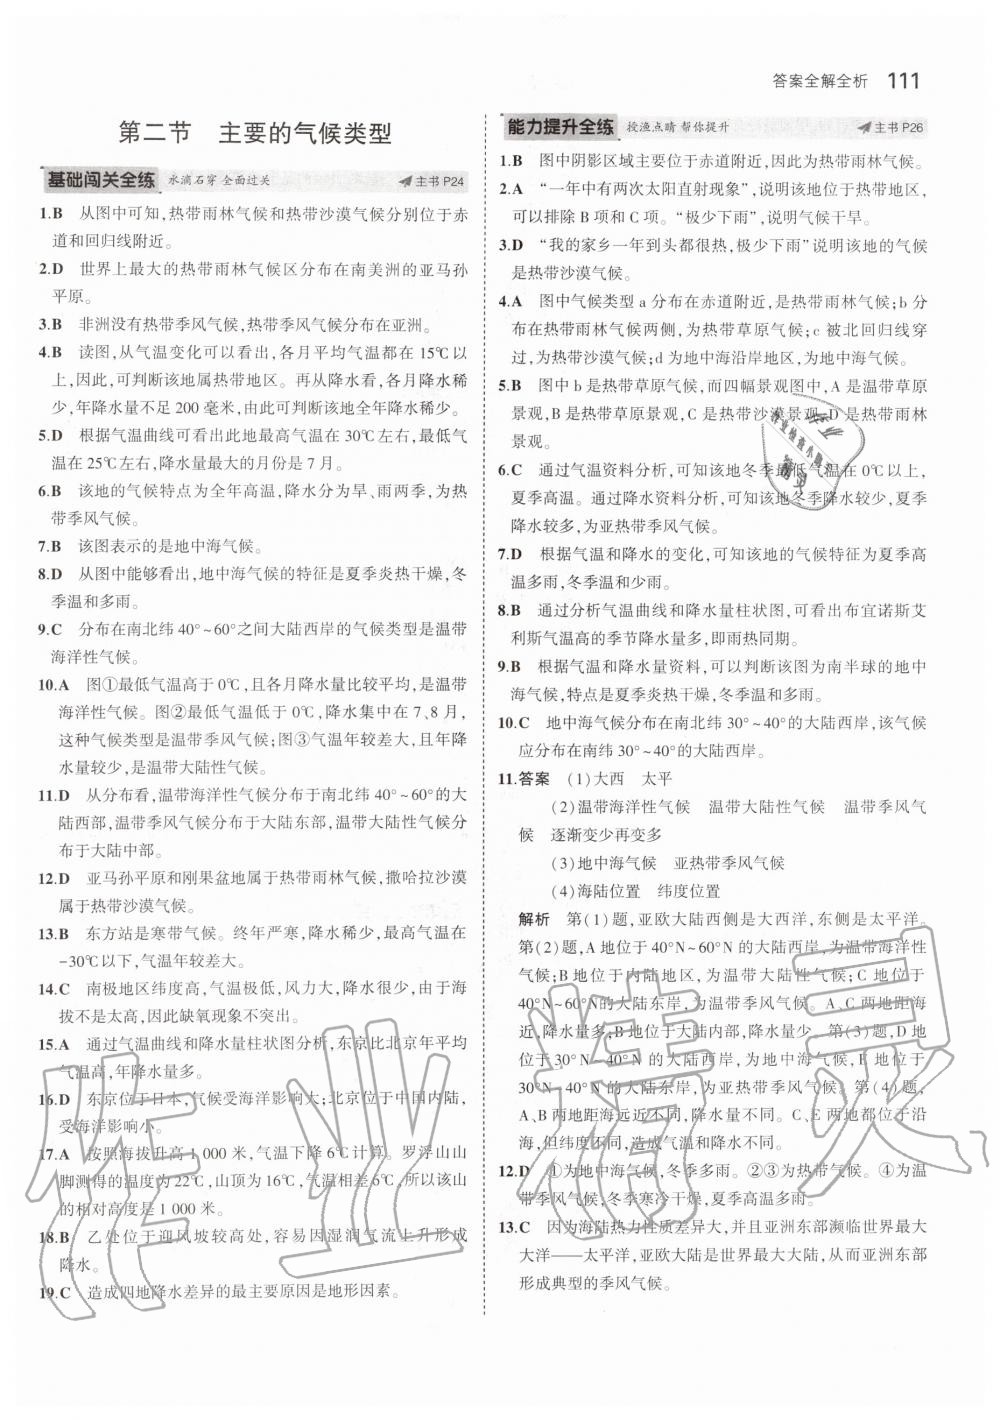 答案全解全析 111
第二节 主要的气候类型
基础闯关全练 水滴石穿 全面过关 主书P24
1.B 从图中可知,热带雨林气候和热带沙漠气候分别位于赤
道和回归线附近。
2.D 世界上最大的热带雨林气候区分布在南美洲的亚马孙
平原。
3.B 非洲没有热带季风气候,热带季风气候分布在亚洲。
4.B 读图,从气温变化可以看出,各月平均气温都在15℃以
上,因此,可判断该地属热带地区。再从降水看,各月降水稀
少,年降水量不足200毫米,由此可判断该地全年降水稀少。
5.D 根据气温曲线可看出此地最高气温在30℃左右,最低气
温在25℃左右,降水量最大的月份是7月。
6.B 该地的气候特点为全年高温,降水分为旱、雨两季,为热
带季风气候。
7.B 该图表示的是地中海气候。
8.D 从图中能够看出,地中海气候的特征是夏季炎热干燥,冬
季温和多雨。
9.C 分布在南北纬40°~60°之间大陆西岸的气候类型是温带
海洋性气候。
10.A 图①最低气温高于0℃,且各月降水量比较平均,是温带
海洋性气候。图②最低气温低于0℃,降水集中在7、8月,
这种气候类型是温带季风气候;图③气温年较差大,且年降
水量较少,是温带大陆性气候。
11.D 从分布看,温带海洋性气候分布于南北纬40°~60°的大
陆西部,温带季风气候分布于大陆东部,温带大陆性气候分
布于大陆中部。
12.D 亚马孙平原和刚果盆地属于热带雨林气候,撒哈拉沙漠
属于热带沙漠气候。
13.B 东方站是寒带气候。终年严寒,降水稀少,最高气温在
-30℃以下,气温年较差大。
14.C 南极地区纬度高,气温极低,风力大,降水少,由于海
拔不是太高,因此缺氧现象不突出。
15.A 通过气温曲线和降水量柱状图分析,东京比北京年平均
气温高,年降水量多。
16.D 东京位于日本,气候受海洋影响大;北京位于中国内陆,
受海洋影响小。
17.A 按照海拔升高1 000米,气温下降6℃计算。罗浮山山
脚测得的温度为22℃,山顶为16℃,气温相差6℃,所以该山
的相对高度是1 000米。
18.B 乙处位于迎风坡较高处,容易因湿润气流上升形成
降水。
19.C 造成四地降水差异的最主要原因是地形因素。
能力提升全练 授渔点睛 帮你提升 主书P26
1.B 图中阴影区域主要位于赤道附近,因此为热带雨林气候。
2.A “一年中有两次太阳直射现象”,说明该地位于热带地区,
可以排除B项和C项。“极少下雨”,说明气候干旱。
3.D “我的家乡一年到头都很热,极少下雨”说明该地的气候
是热带沙漠气候。
4.A 图中气候类型a分布在赤道附近,是热带雨林气候;b分
布在热带雨林气候两侧,为热带草原气候;c被北回归线穿
过,为热带沙漠气候;d为地中海沿岸地区,为地中海气候。
5.B 图中b是热带草原气候,而四幅景观图中,A是温带草原
景观,B是热带草原景观,C是热带沙漠景观,D是热带雨林
景观。
6.C 通过气温资料分析,可知该地冬季最低气温在0℃以上,
夏季高温。通过降水资料分析,可知该地冬季降水较少,夏季
降水较多,为亚热带季风气候。
7.D 根据气温和降水的变化,可知该地的气候特征为夏季高
温多雨,冬季温和少雨。
8.B 通过分析气温曲线和降水量柱状图,可看出布宜诺斯艾
利斯气温高的季节降水量多,即雨热同期。
9.B 根据气温和降水量资料,可以判断该图为南半球的地中
海气候,特点是夏季炎热干燥,冬季温和多雨。
10.C 地中海气候分布在南北纬30°~40°的大陆西岸,该气候
应分布在南纬30°~40°的大陆西岸。
11.答案 (1)大西 太平
(2)温带海洋性气候 温带大陆性气候 温带季风气
候 逐渐变少再变多
(3)地中海气候 亚热带季风气候
(4)海陆位置 纬度位置
解析 第(1)题,亚欧大陆西侧是大西洋,东侧是太平洋。
第(2)题,A地位于40°N~60°N的大陆西岸,为温带海洋性
气候;B地位于内陆地区,为温带大陆性气候;C地位于
40°N~60°N的大陆东岸,为温带季风气候。A、C两地距海
近,降水量多;B地位于大陆内部,降水量少。第(3)题,D地
位于30°N~40°N的大陆西岸,为地中海气候,E地位于
30°N~40°N的大陆东岸,为亚热带季风气候。第(4)题,
A、B两地距海远近不同,降水量不同。C、E两地都位于沿
海,但纬度不同,造成气温和降水不同。
12.D ①为地中海气候,冬季多雨。②③为热带气候。④为温
带季风气候,冬季寒冷干燥,夏季高温多雨。
13.C 因为海陆热力性质差异大,并且亚洲东部濒临世界最大
大洋——太平洋,亚欧大陆是世界最大大陆,从而亚洲东部
形成典型的季风气候。
作业精灵